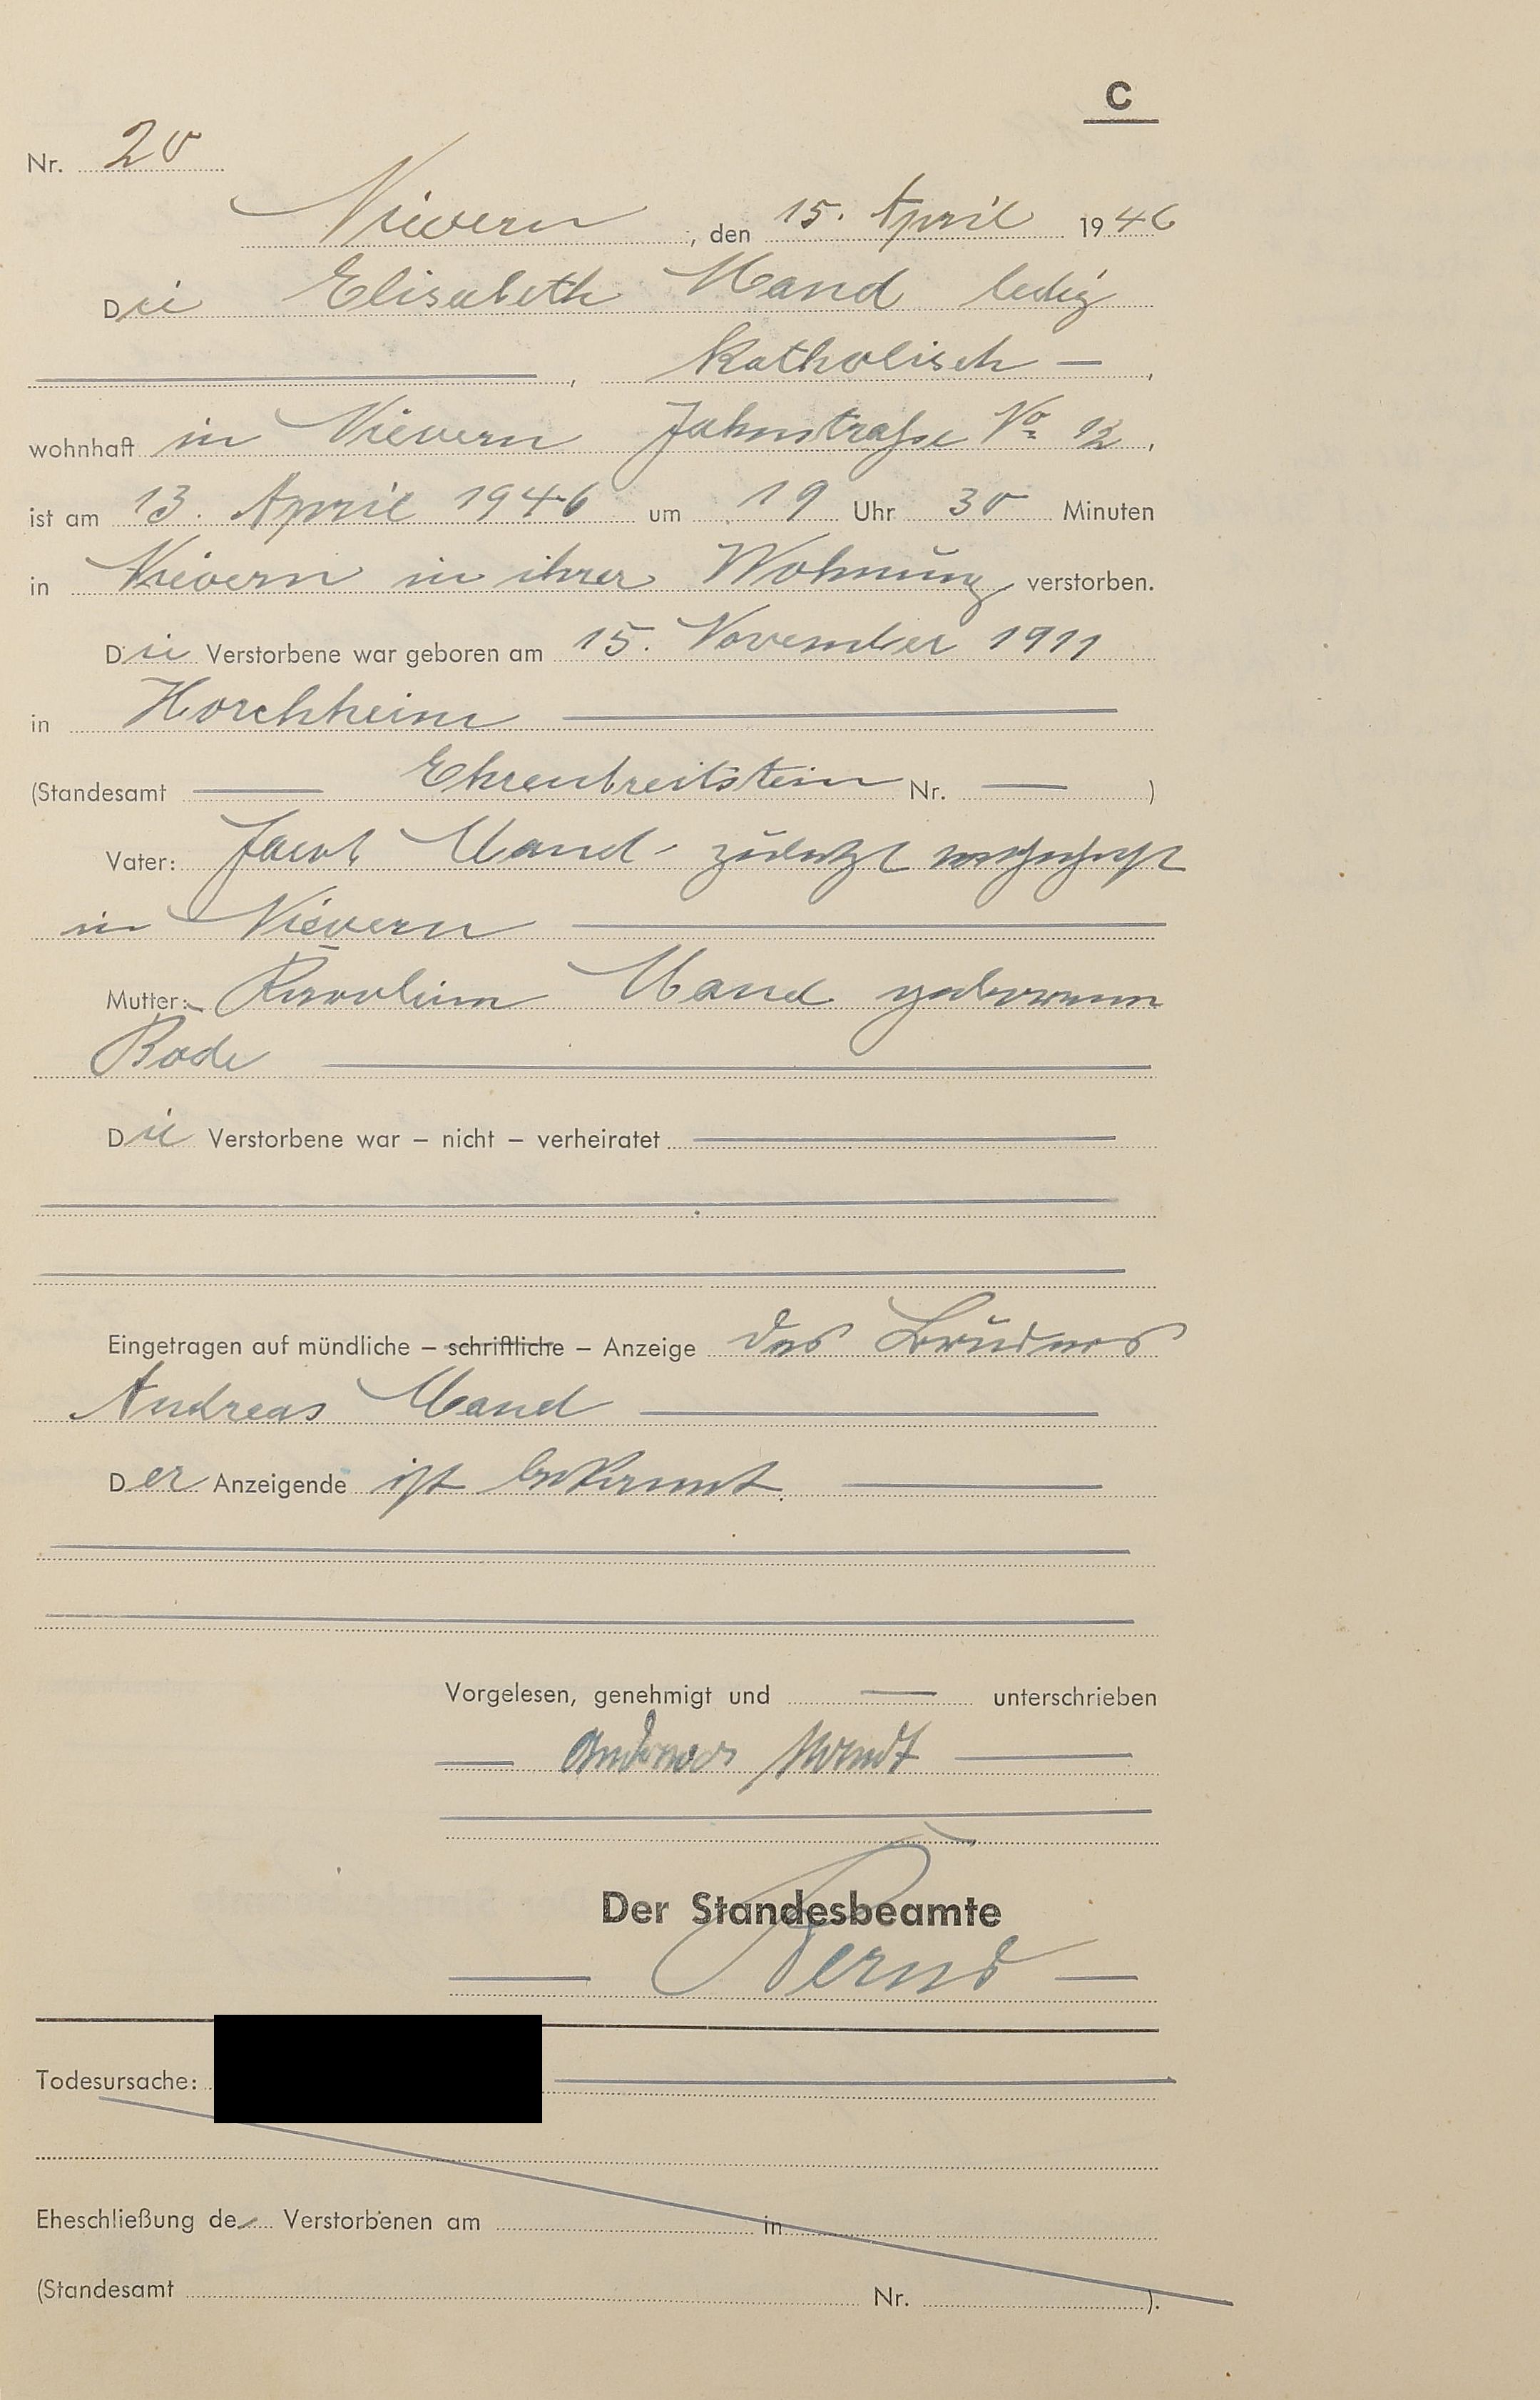 C
Nr. 20
Nievern, den 15. April 1946
Die Elisabeth Mand ledig
, katholisch —,
wohnhaft in Nievern Jahnstraße No 12,
ist am 13. April 1946 um 19 Uhr 30 Minuten
in Nievern in ihrer Wohnung verstorben.
Die Verstorbene war geboren am 15. November 1911
in Horchheim
(Standesamt — Ehrenbreitstein Nr. — )
Vater: Jacob Mand zuletzt wohnhaft
in Nievern
Mutter: Karoline Mand geborenen
Bode
Die Verstorbene war – nicht – verheiratet
Eingetragen auf mündliche – schriftliche – Anzeige des Bruders
Andreas Mand
Der Anzeigende ist bekannt.
Vorgelesen, genehmigt und — unterschrieben
— Andreas —
Der Standesbeamte
Todesursache:
Eheschließung de Verstorbenen am in
(Standesamt Nr. ).